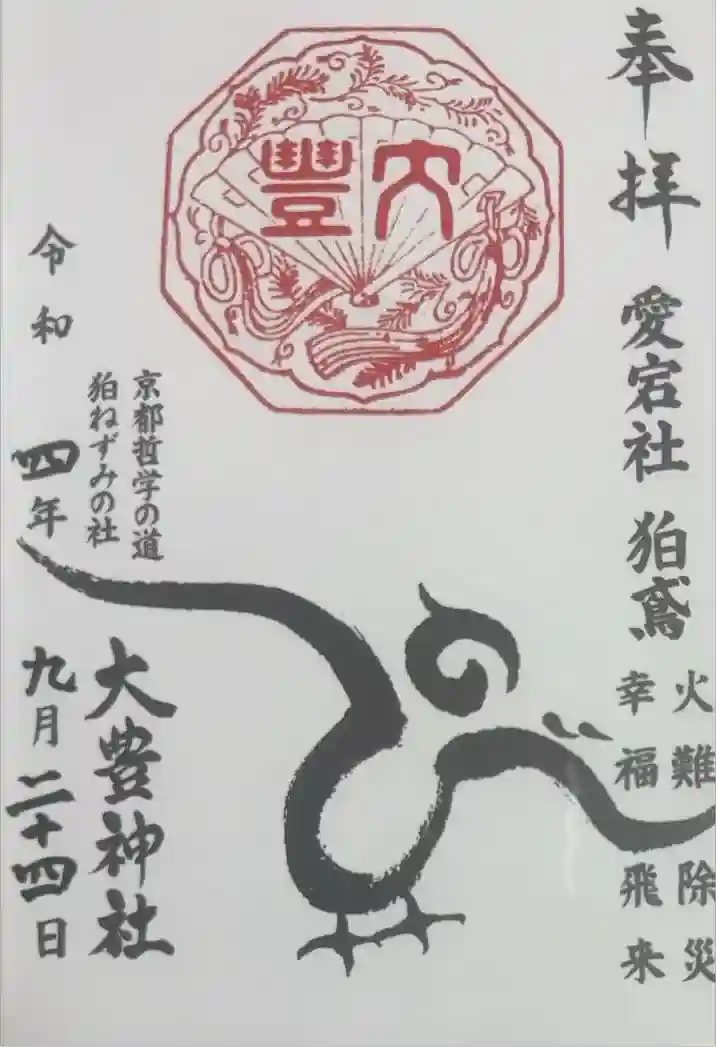 奉拝
愛宕社 狛鳶
火難除災
幸福飛来
大豐
京都哲学の道
狛ねずみの社
大豊神社
令和四年九月二十四日